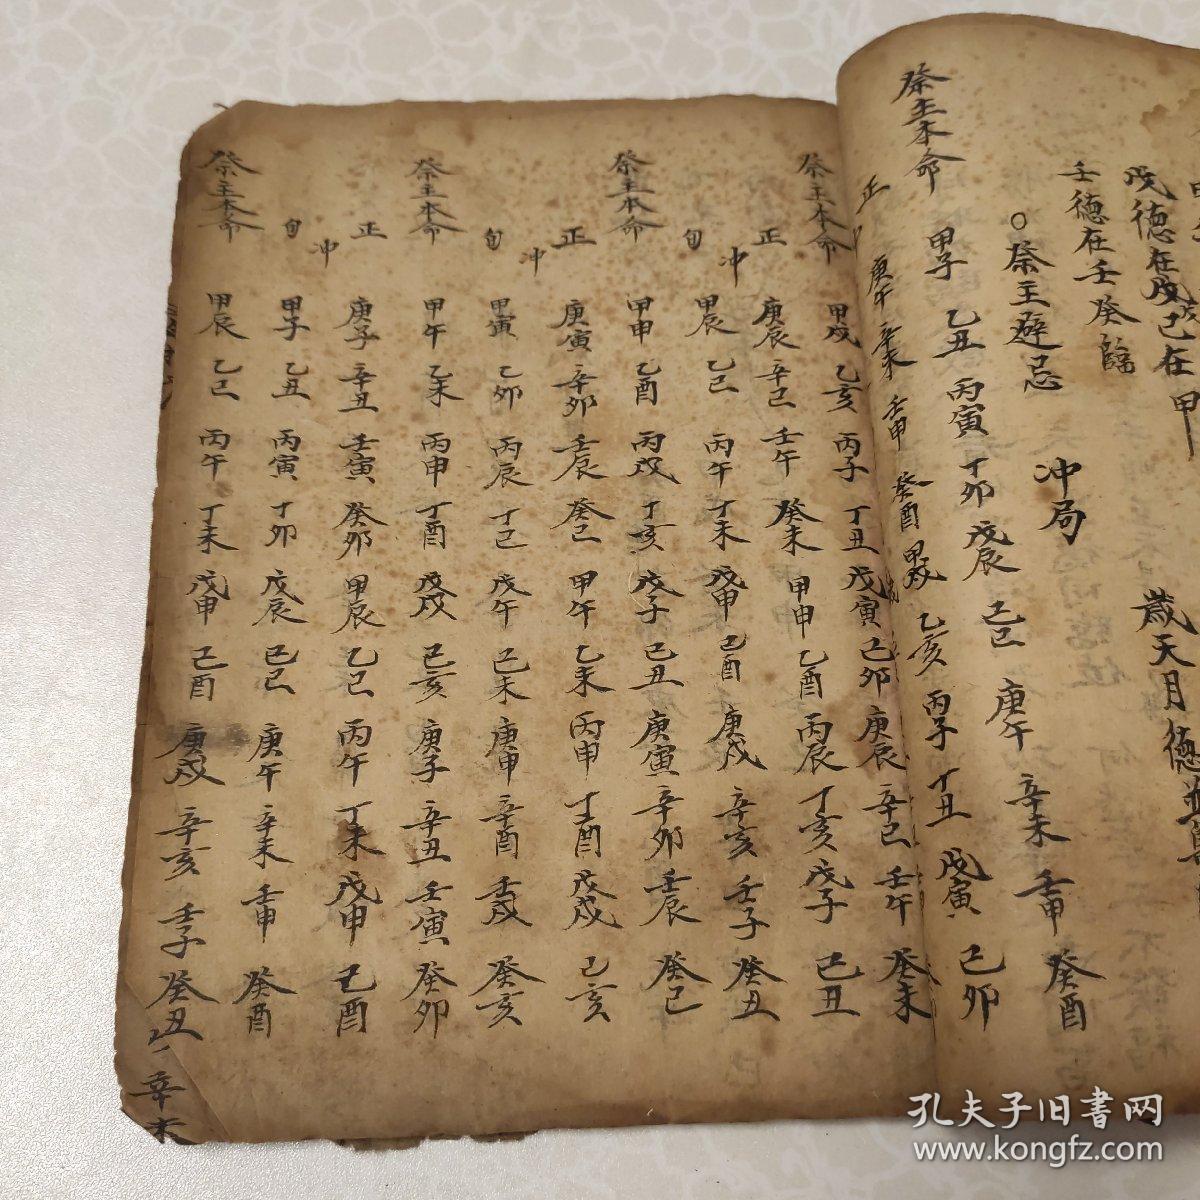 戊德在戊己在甲
壬德在壬癸臨
歲天月德
○祭主避忌 冲局
祭主本命 甲子 乙丑 丙寅 丁卯 戊辰 己巳 庚午 辛未 壬申 癸酉
正 庚午 辛未 壬申 癸酉 甲戌 乙亥 丙子 丁丑 戊寅 己卯
祭主本命 甲戌 乙亥 丙子 丁丑 戊寅 己卯 庚辰 辛巳 壬午 癸未
正冲 庚辰 辛巳 壬午 癸未 甲申 乙酉 丙辰 丁亥 戊子 己丑
旬 甲辰 乙巳 丙午 丁未 戊申 己酉 庚戌 辛亥 壬子 癸丑
祭主本命 甲申 乙酉 丙戌 丁亥 戊子 己丑 庚寅 辛卯 壬辰 癸巳
正冲 庚寅 辛卯 壬辰 癸巳 甲午 乙未 丙申 丁酉 戊戌 己亥
旬 甲寅 乙卯 丙辰 丁巳 戊午 己未 庚申 辛酉 壬戌 癸亥
祭主本命 甲午 乙未 丙申 丁酉 戊戌 己亥 庚子 辛丑 壬寅 癸卯
正冲 庚子 辛丑 壬寅 癸卯 甲辰 乙巳 丙午 丁未 戊申 己酉
旬 甲子 乙丑 丙寅 丁卯 戊辰 己巳 庚午 辛未 壬申 癸酉
祭主本命 甲辰 乙巳 丙午 丁未 戊申 己酉 庚戌 辛亥 壬子 癸丑
辛未
孔夫子旧书网
www.kongfz.com